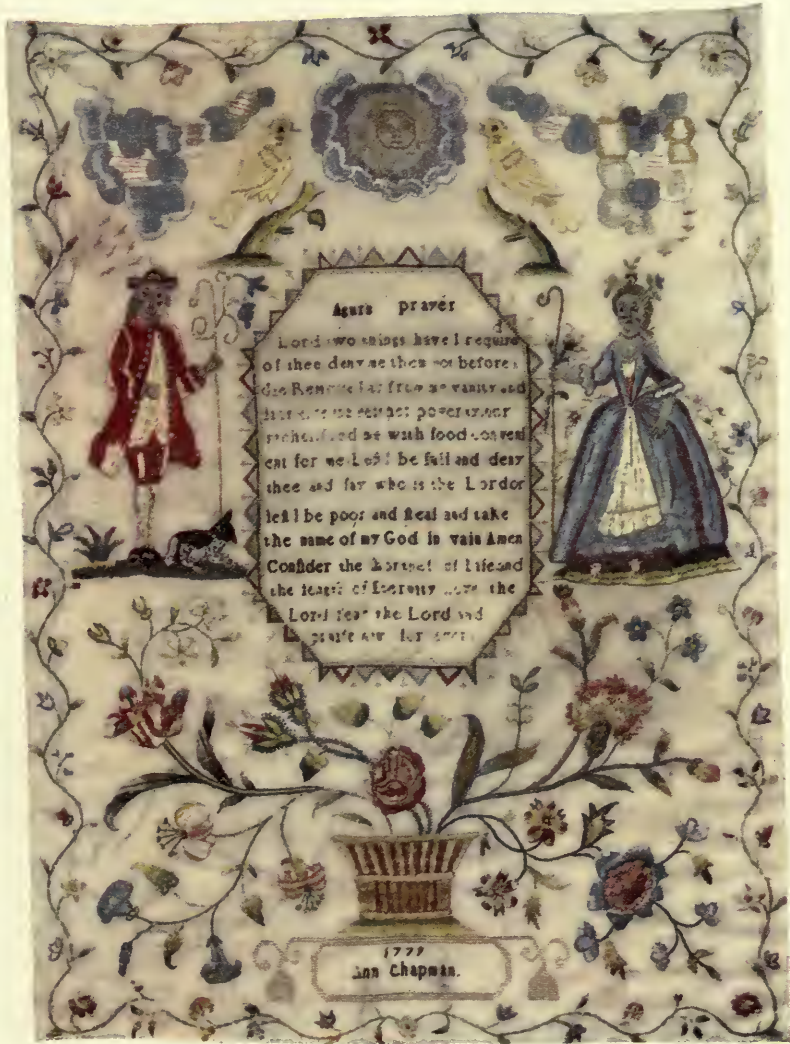 Agurs prayer
Lord two things have I requird
of thee deny me them not before I
die Remove far from me vanity and
lies give me neither poverty nor
riches feed me with food conveni
ent for me Lest I be full and deny
thee and say who is the Lord or
lest I be poor and steal and take
the name of my God in vain Amen
Consider the shortnes of Life and
the length of Eternity the
Lord fear the Lord and
praise him for ever
1779
Ann Chapman.